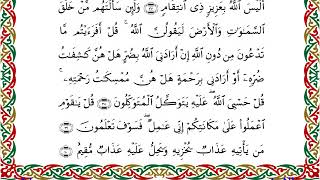 أَلَيْسَ ٱللَّهُ بِعَزِيزٍ ذِى ٱنتِقَامٍ ﴿٣٧﴾ وَلَئِن سَأَلْتَهُم مَّنْ خَلَقَ
ٱلسَّمَـٰوَٰتِ وَٱلْأَرْضَ لَيَقُولُنَّ ٱللَّهُ ۚ قُلْ أَفَرَءَيْتُم مَّا
تَدْعُونَ مِن دُونِ ٱللَّهِ إِنْ أَرَادَنِىَ ٱللَّهُ بِضُرٍّ هَلْ هُنَّ كَـٰشِفَـٰتُ
ضُرِّهِۦٓ أَوْ أَرَادَنِى بِرَحْمَةٍ هَلْ هُنَّ مُمْسِكَـٰتُ رَحْمَتِهِۦ ۚ
قُلْ حَسْبِىَ ٱللَّهُ ۖ عَلَيْهِ يَتَوَكَّلُ ٱلْمُتَوَكِّلُونَ ﴿٣٨﴾ قُلْ يَـٰقَوْمِ
ٱعْمَلُوا۟ عَلَىٰ مَكَانَتِكُمْ إِنِّى عَـٰمِلٌ ۖ فَسَوْفَ تَعْلَمُونَ ﴿٣٩﴾
مَن يَأْتِيهِ عَذَابٌ يُخْزِيهِ وَيَحِلُّ عَلَيْهِ عَذَابٌ مُّقِيمٌ ﴿٤٠﴾